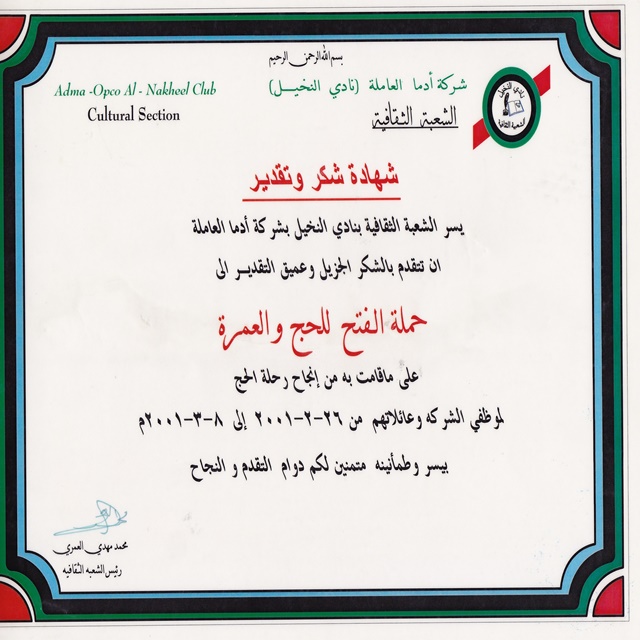 بسم الله الرحمن الرحيم
Adma -Opco Al - Nakheel Club
Cultural Section
شركة أدما العاملة (نادي النخيـــل)
الشعبة الثقافية
نادي النخيل
الشعبة الثقافية
شهادة شكر وتقدير
يسر الشعبة الثقافية بنادي النخيل بشركة أدما العاملة
ان تتقدم بالشكر الجزيل وعميق التقديـر الى
حملة الفتح للحج والعمرة
على ماقامت به من إنجاح رحلة الحج
لموظفي الشركه وعائلاتهم من ٢٦-٢-٢٠٠١ إلى ٨-٣-٢٠٠١م
بيسر وطمأنينه متمنين لكم دوام التقدم و النجاح
محمد مهدي العمري
رئيس الشعبه الثقافيه